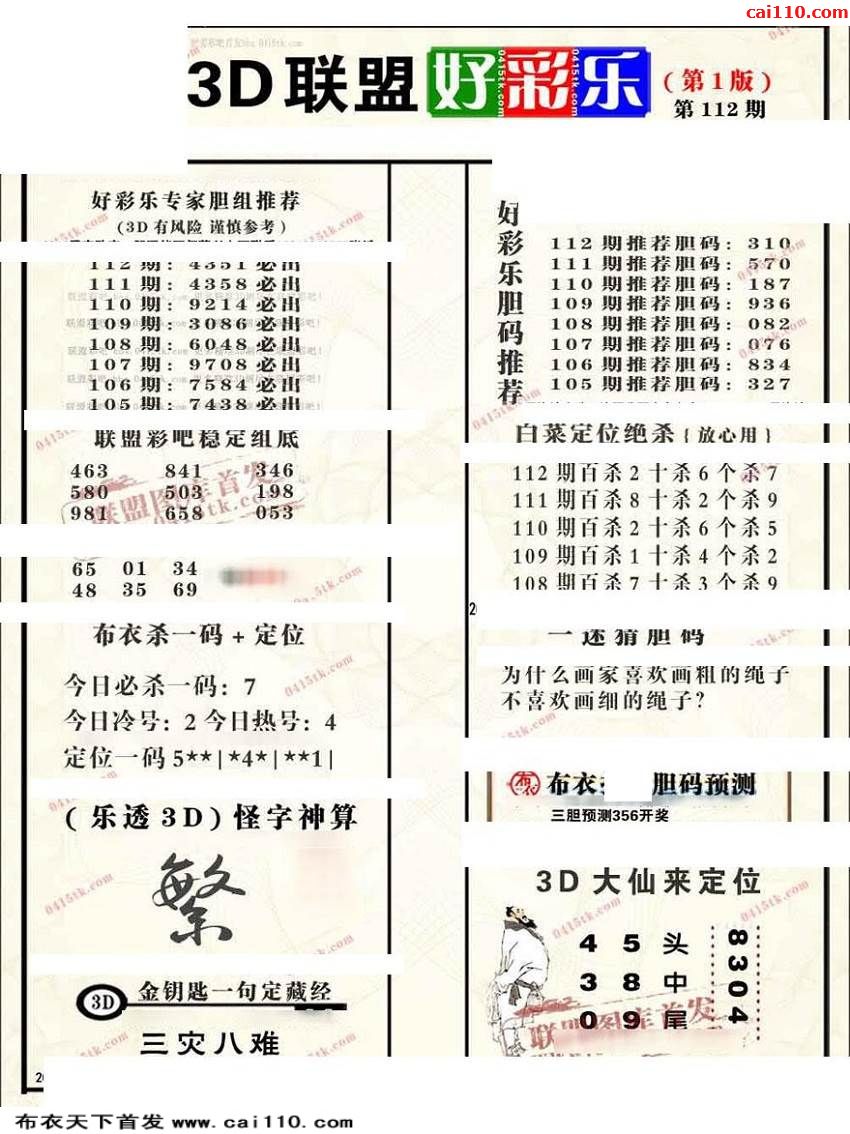 cai110.com
3D联盟好彩乐
(第1版)
第112期
好彩乐专家胆组推荐
(3D有风险 谨慎参考)
112期: 4351必出
111期: 4358必出
110期: 9214必出
109期: 3086必出
108期: 6048必出
107期: 9708必出
106期: 7584必出
105期: 7438必出
联盟彩吧稳定组底
463 841 346
580 503 198
981 658 053
65 01 34
48 35 69
布衣杀一码+定位
今日必杀一码: 7
今日冷号: 2 今日热号: 4
定位一码5**|*4*|**1|
(乐透3D)怪字神算
繁
3D 金钥匙一句定藏经
三灾八难
好彩乐胆码推荐
112期推荐胆码: 310
111期推荐胆码: 570
110期推荐胆码: 187
109期推荐胆码: 936
108期推荐胆码: 082
107期推荐胆码: 076
106期推荐胆码: 834
105期推荐胆码: 327
白菜定位绝杀{放心用}
112期百杀2十杀6个杀7
111期百杀8十杀2个杀9
110期百杀2十杀6个杀5
109期百杀1十杀4个杀2
108期百杀7十杀3个杀9
一迷猜胆码
为什么画家喜欢画粗的绳子
不喜欢画细的绳子?
布衣 胆码预测
三胆预测356开奖
3D大仙来定位
4 5 头
3 8 中
0 9 尾
8304
联盟图库首发
0415tk.com
布衣天下首发 www.cai110.com